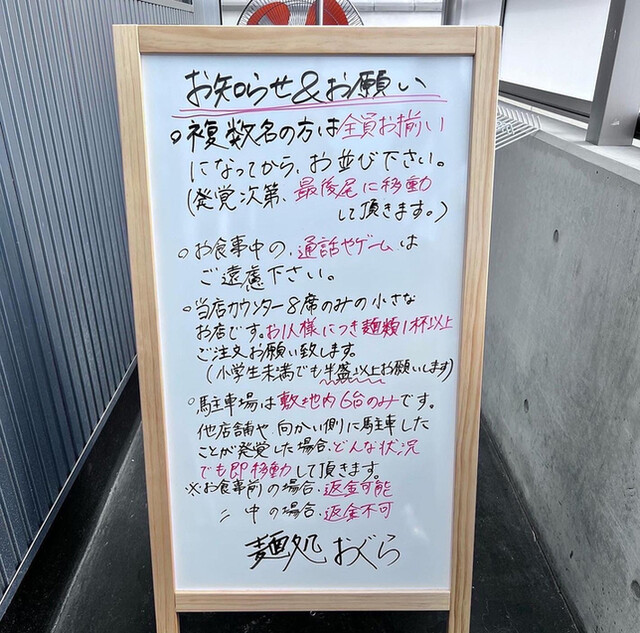 お知らせ&お願い
○複数名の方は全員お揃い
になってから、お並び下さい。
(発覚次第、最後尾に移動
して頂きます。)
○お食事中の、通話やゲームは
ご遠慮下さい。
○当店カウンター8席のみの小さな
お店です。お1人様につき麺類1杯以上
ご注文お願い致します。
(小学生未満でも半盛以上お願いします)
○駐車場は敷地内6台のみです。
他店舗や、向かい側に駐車した
ことが発覚した場合、どんな状況
でも即移動して頂きます。
※お食事前の場合、返金可能
〃 中の場合、返金不可
麺処 おぐら